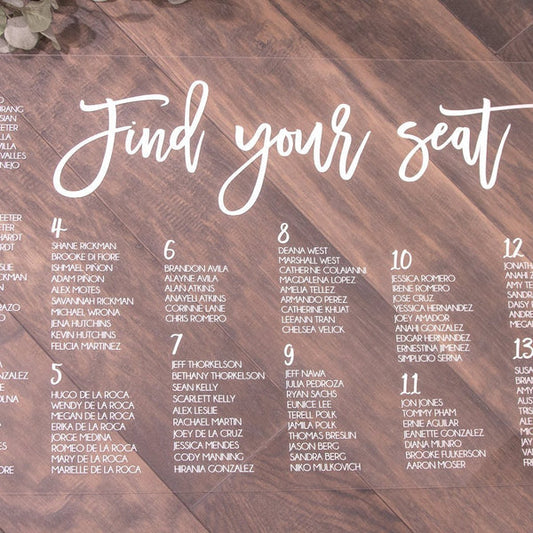 Find your seat
URANG
SIAN
EETER
VILLA
VILLA
VALLES
NEJO
EETER
HARDT
LISLE
PAZO
4
SHANE RICKMAN
BROOKE DI FIORE
ISHMAEL PIÑON
ADAM PIÑON
ALEX MOTES
SAVANNAH RICKMAN
MICHAEL WRONA
JENA HUTCHINS
KEVIN HUTCHINS
FELICIA MARTINEZ
5
HUGO DE LA ROCA
WENDY DE LA ROCA
MEGAN DE LA ROCA
ERIKA DE LA ROCA
JORGE MEDINA
ROMEO DE LA ROCA
MARY DE LA ROCA
MARIELLE DE LA ROCA
6
BRANDON AVILA
ALAYNE AVILA
ALAN ATKINS
ANAYELI ATKINS
CORINNE LANE
CHRIS ROMERO
7
JEFF THORKELSON
BETHANY THORKELSON
SEAN KELLY
SCARLETT KELLY
ALEX LESLIE
RACHAEL MARTIN
JOEY DE LA CRUZ
JESSICA MENDES
CODY MANNING
HIRANIA GONZALEZ
8
DEANA WEST
MARSHALL WEST
CATHERINE COLAIANNI
MAGDALENA LOPEZ
AMELIA TELLEZ
ARMANDO PEREZ
CATHERINE KHUAT
LEEANN TRAN
CHELSEA VELICK
9
JEFF NAWA
JULIA PEDROZA
RYAN SACHS
EUNICE LEE
TERELL POLK
JAMILA POLK
THOMAS BRESLIN
JASON BERG
SANDRA BERG
NIKO MULKOVICH
10
JESSICA ROMERO
IRENE ROMERO
JOSE CRUZ
YESSICA HERNANDEZ
JOEY AMADOR
ANAHI GONZALEZ
EDGAR HERNANDEZ
ERNESTINA JIMENEZ
SIMPLICIO SERNA
11
JON JONES
TOMMY PHAM
ERNIE AGUILAR
JEANETTE GONZALEZ
DIANA MUNRO
BROOKE FULKERSON
AARON MOSER
12
JONATH
ANAHI
AMY TE
SANDR
DAISY
ANDRE
MEGA
13
SUSA
BRIAN
AMY
ALIS
TRIS
MICH
AMY
SAND
FRE